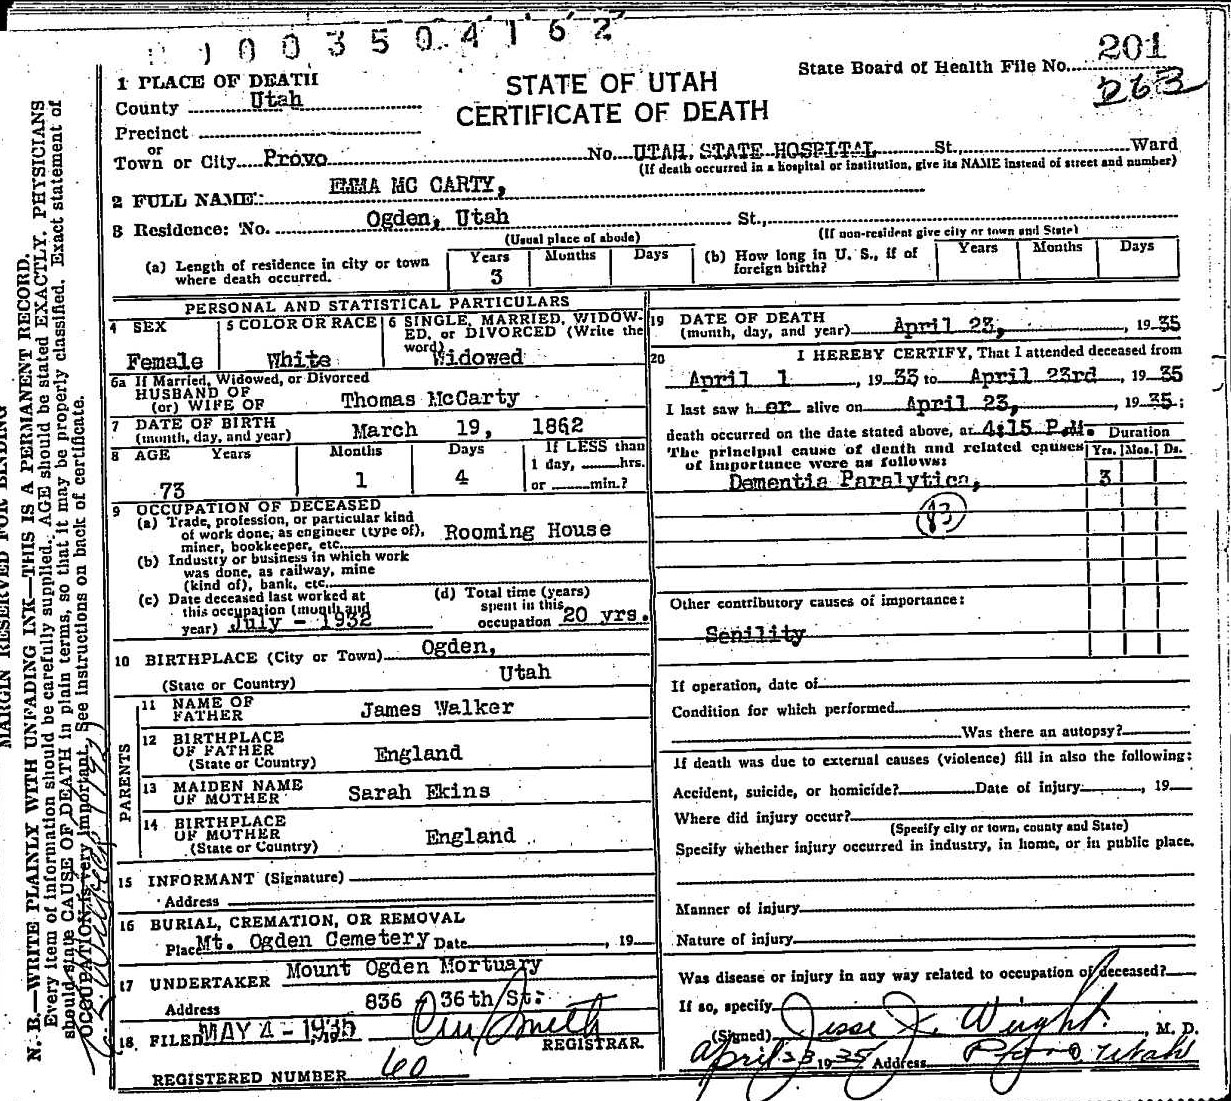 1003504162
201
State Board of Health File No.
263
STATE OF UTAH
CERTIFICATE OF DEATH
1 PLACE OF DEATH
County Utah
Precinct
or
Town or City Provo No. UTAH STATE HOSPITAL St., Ward
(If death occurred in a hospital or institution, give its NAME instead of street and number)
2 FULL NAME: EMMA MC CARTY,
3 Residence: No. Ogden, Utah St.,
(Usual place of abode) (If non-resident give city or town and State)
(a) Length of residence in city or town where death occurred. Years 3 Months Days
(b) How long in U. S., if of foreign birth? Years Months Days
PERSONAL AND STATISTICAL PARTICULARS
4 SEX Female
5 COLOR OR RACE White
6 SINGLE, MARRIED, WIDOWED, or DIVORCED (Write the word) Widowed
6a If Married, Widowed, or Divorced
HUSBAND OF
(or) WIFE OF Thomas McCarty
7 DATE OF BIRTH
(month, day, and year) March 19, 1862
8 AGE Years 73 Months 1 Days 4 If LESS than
1 day, hrs.
or min.?
9 OCCUPATION OF DECEASED
(a) Trade, profession, or particular kind
of work done, as engineer (type of),
miner, bookkeeper, etc. Rooming House
(b) Industry or business in which work
was done, as railway, mine
(kind of), bank, etc.
(c) Date deceased last worked at
this occupation (month and
year) July - 1932
(d) Total time (years)
spent in this
occupation 20 yrs.
10 BIRTHPLACE (City or Town) Ogden,
(State or Country) Utah
PARENTS
11 NAME OF
FATHER James Walker
12 BIRTHPLACE
OF FATHER
(State or Country) England
13 MAIDEN NAME
OF MOTHER Sarah Ekins
14 BIRTHPLACE
OF MOTHER
(State or Country) England
15 INFORMANT (Signature)
Address
16 BURIAL, CREMATION, OR REMOVAL
Place Mt. Ogden Cemetery Date , 19
17 UNDERTAKER Mount Ogden Mortuary
Address 836 36th St.
18 FILED MAY 4 - 1935 Smith
REGISTRAR
REGISTERED NUMBER 60
19 DATE OF DEATH
(month, day, and year) April 23, , 1935
20 I HEREBY CERTIFY, That I attended deceased from
April 1 , 1933 to April 23rd , 1935
I last saw her alive on April 23, , 1935;
death occurred on the date stated above, at 4:15 P.M. Duration
The principal cause of death and related causes
of importance were as follows: Yrs. Mos. Ds.
Dementia Paralytica, 3
83
Other contributory causes of importance:
Senility
If operation, date of
Condition for which performed
Was there an autopsy?
If death was due to external causes (violence) fill in also the following:
Accident, suicide, or homicide? Date of injury , 19
Where did injury occur?
(Specify city or town, county and State)
Specify whether injury occurred in industry, in home, or in public place.
Manner of injury
Nature of injury
Was disease or injury in any way related to occupation of deceased?
If so, specify
(Signed) Jesse J. Weight , M. D.
April 23 1935 Address Provo Utah
MARGIN RESERVED FOR BINDING
N. B.—WRITE PLAINLY WITH UNFADING INK—THIS IS A PERMANENT RECORD.
Every item of information should be carefully supplied. AGE should be stated EXACTLY. PHYSICIANS
should state CAUSE OF DEATH in plain terms, so that it may be properly classified. Exact statement of
OCCUPATION is very important. See instructions on back of certificate.